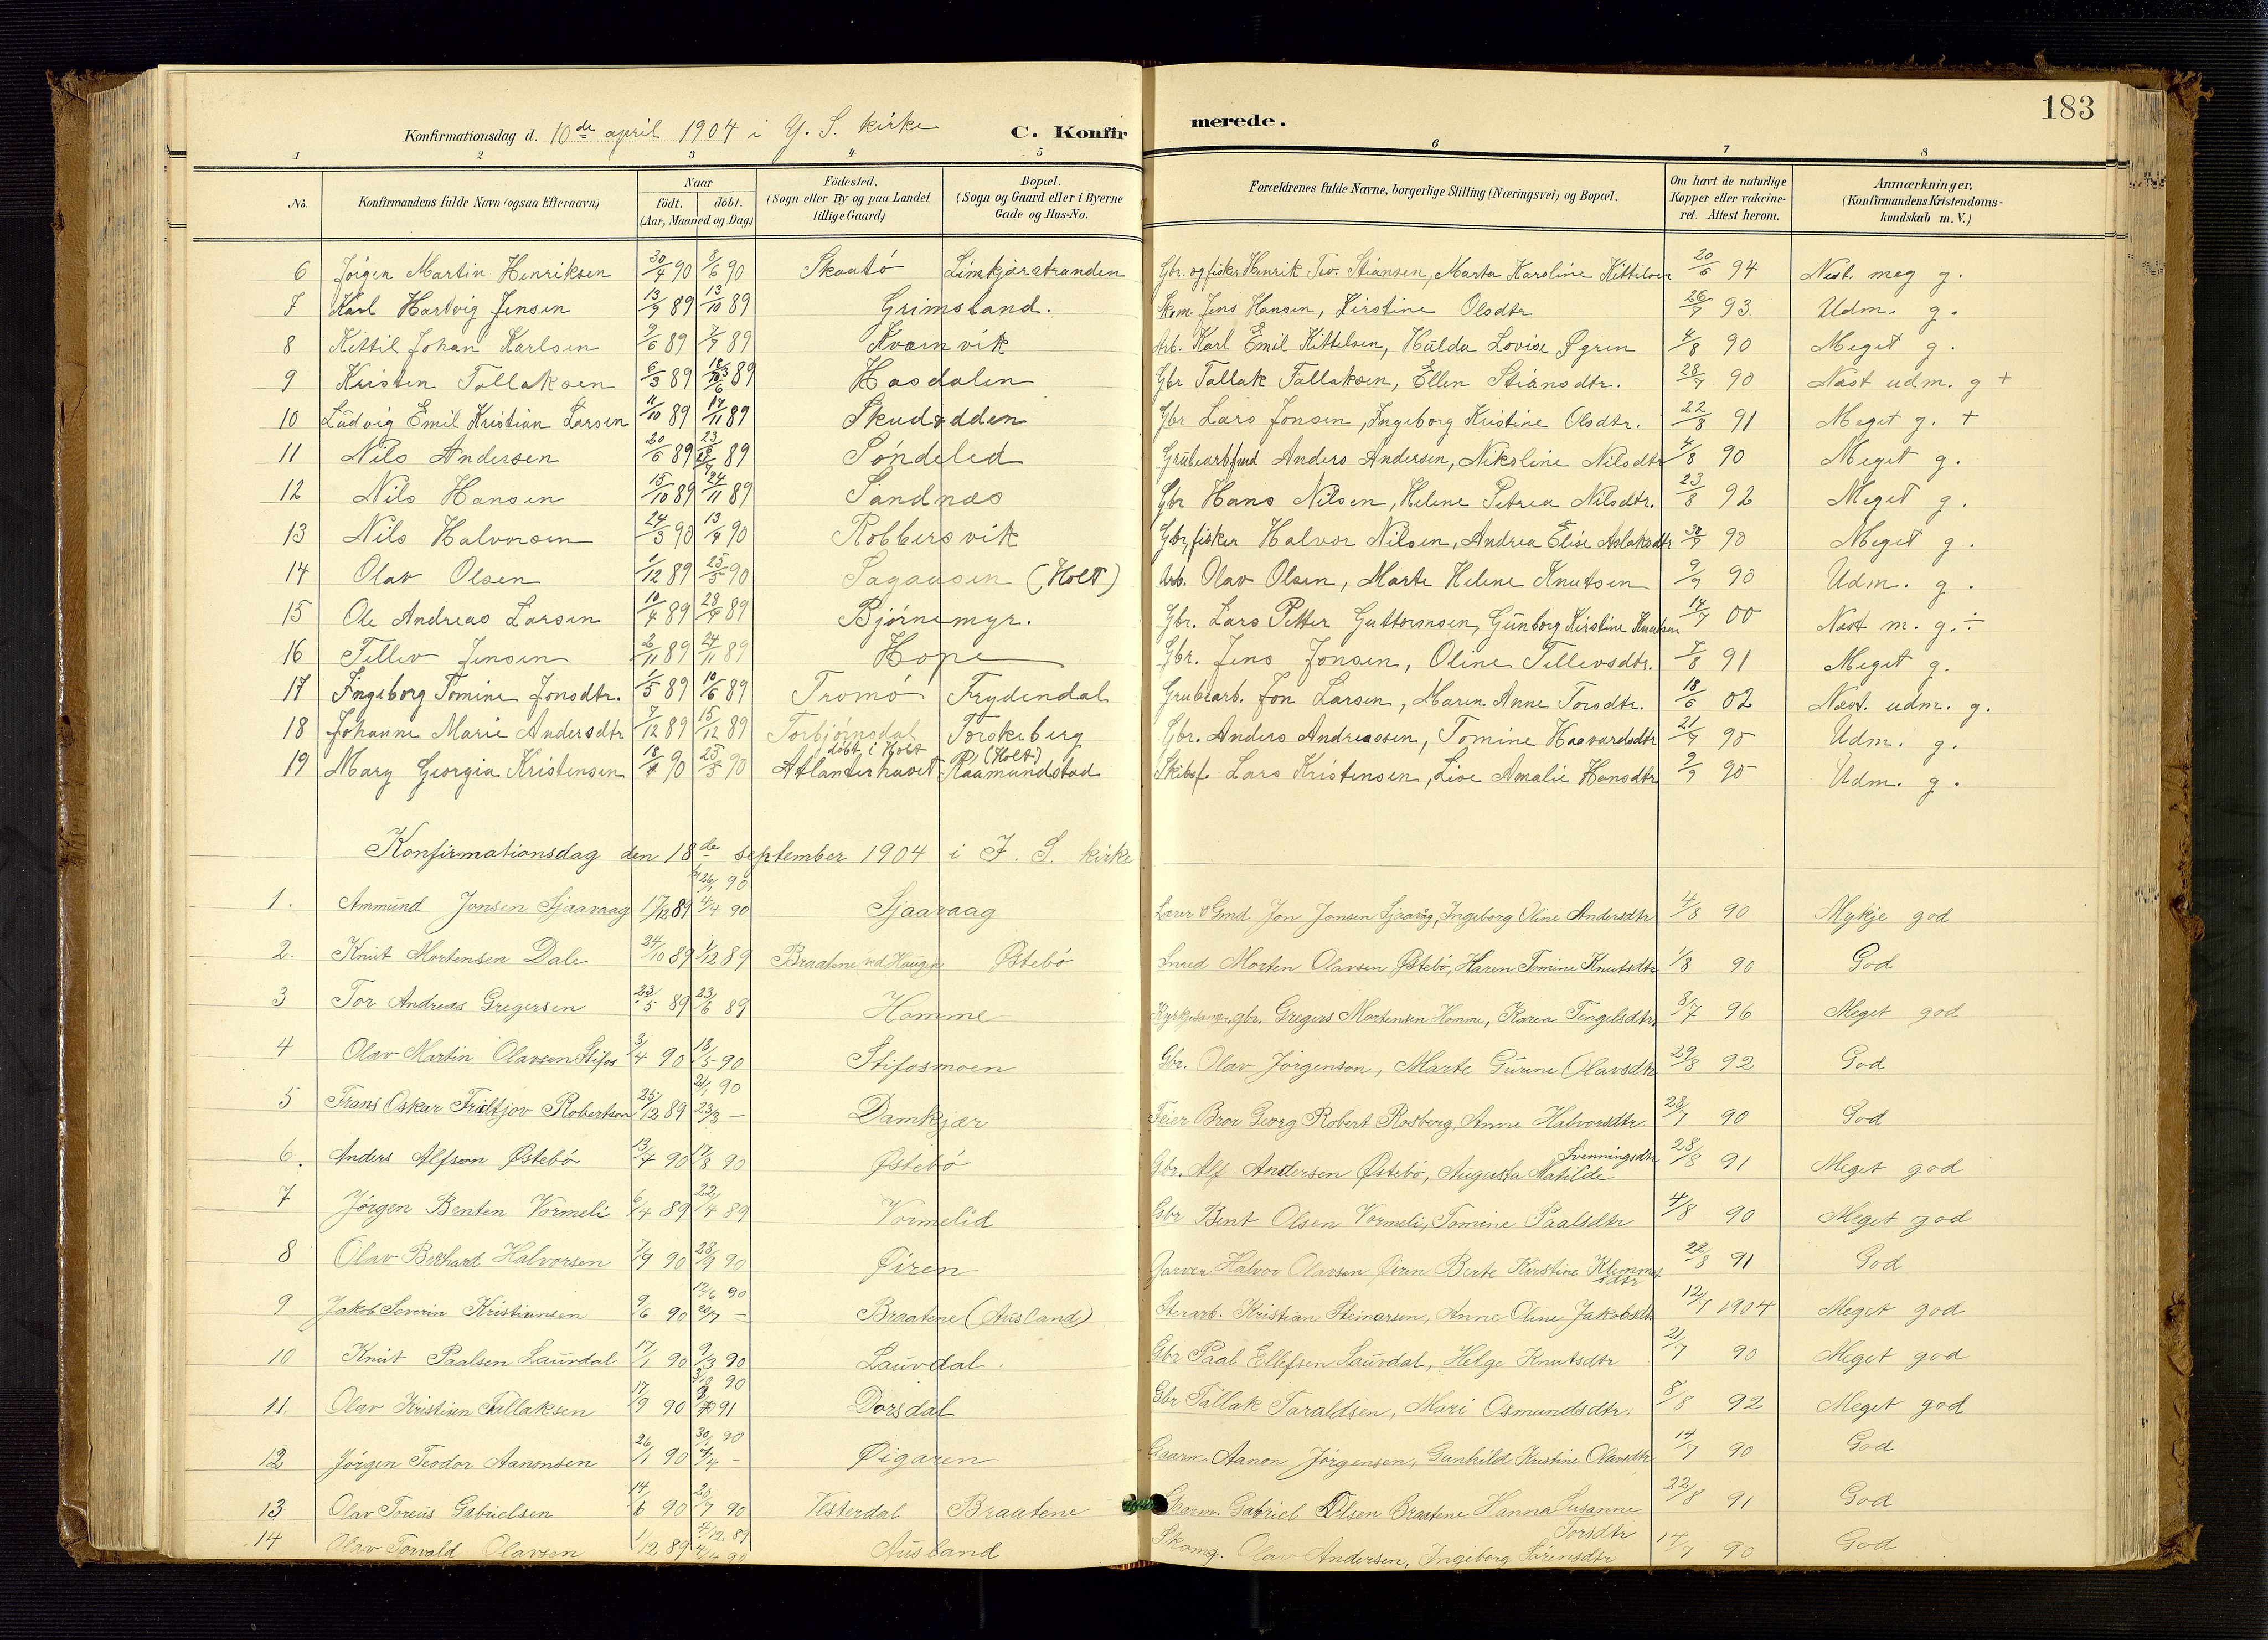 183
Konfirmationsdag d. 10de april 1904 i Y. S. kirke C. Konfirmerede.
1 2 3 4 5 6 7 8
No. Konfirmandens fulde Navn (ogsaa Efternavn) Naar født. døbt. (Aar, Maaned og Dag) Födested. (Sogn eller By og paa Landet tillige Gaard) Bopæl. (Sogn og Gaard eller i Byerne Gade og Hus-No. Forældrenes fulde Navne, borgerlige Stilling (Næringsvei) og Bopæl. Om havt de naturlige Kopper eller vakcineret. Attest herom. Anmærkninger, (Konfirmandens Kristendomskundskab m. V.)
6 Jørgen Martin Henriksen 30/4 90 8/6 90 Skaatö Limkjærstranden Gbr. og fisker Henrik Tev. Stiansen, Marta Karoline 20/6 94 Nest. meg g.
7 Karl Hartvig Jensen 13/9 89 13/10 89 Grimsland. Skom. Jens Hansen, Kirstine Olsdtr 26/7 93. Udm. g.
8 Kittil Johan Karlsen 9/6 89 7/7 89 Kvarnvik Arb. Karl Emil Kittelsen, Hulda Lovise Øgren 4/8 90 Meget g.
9 Kristen Tallaksen 6/3 89 89 Hasdalen Gbr Tallak Tallaksen, Ellen Stiansdtr. 28/7 90 Næst udm. g +
10 Ludvig Emil Kristian Larsen 11/10 89 17/11 89 Skudodden Gbr Lars Jonsen, Ingeborg Kristine Olsdtr. 22/8 91 Meget g. +
11 Nils Andersen 20/6 89 89 Söndeled Grubearbfmd Anders Andersen, Nikoline Nilsdtr 4/8 90 Meget g.
12 Nils Hansen 15/10 89 24/11 89 Sandnæs Gbr Hans Nilsen, Helene Petrea Nilsdtr. 23/8 92 Meget g.
13 Nils Halvorsen 24/3 90 13/4 90 Robbersvik Gbr, fisker Halvor Nilsen, Andrea Elise Aslaksdtr 90 Meget g.
14 Olav Olsen 1/12 89 25/5 90 Sagaasen (Holt) Arb. Olav Olsen, Marte Helene Knutsen 9/9 90 Udm. g.
15 Ole Andreas Larsen 10/4 89 28/4 89 Bjørnemyr. Gbr. Lars Petter Guttormsen, Gunborg Kirstine Knutsen 14/7 00 Næst m. g. ÷
16 Tellev Jensen 2/11 89 24/11 89 Hope Gbr. Jens Jonsen, Oline Tellevsdtr. 7/8 91 Meget g.
17 Ingeborg Tomine Jonsdtr. 1/5 89 10/6 89 Tromö Frydendal Grubearb. Jon Larsen, Maren Anne Torsdtr. 18/6 02 Næst. udm. g.
18 Johanne Marie Andersdtr 7/12 89 15/12 89 Torbjörnsdal Torskeberg Gbr. Anders Andreassen, Tomine Haavardsdtr 21/7 90 Udm. g.
19 Mary Georgia Kristensen 18/4 90 25/5 90 Atlanterhavet döbt i Holt Raamundstad (Holt) Skibsf. Lars Kristensen, Lise Amalie Hansdtr 9/9 90 Udm. g.
Konfirmationsdag den 18de september 1904 i I. S. kirke
1. Ammund Jonsen Sjaavaag 17/12 89 26/1 90 4/4 90 Sjaavaag Lærer & Gmd Jon Jonsen Sjaavåg, Ingeborg Oline Andersdtr 4/8 90 Mykje god
2. Knut Mortensen Dale 24/10 89 1/12 89 Braatene ved Haugen Østebö Inred Morten Olavsen Østebö, Karen Tomine Knutsdtr 1/8 90 God
3 Tor Andreas Gregersen 23/5 89 23/6 89 Homme Kyrkjesanger, gbr. Gregers Mortensen Homme, Karen Tengelsdtr 8/7 96 Meget god
4 Olav Martin Olavsen Stifos 3/4 90 18/5 90 Stifosmoen Gbr. Olav Jörgenson, Marte Gurine Olavsdtr 29/8 92 God
5 Frans Oskar Fridtjov Robertson 25/12 89 21/1 90 23/3 – Damkjær Feier Bror Georg Robert Rosberg, Anne Halvorsdtr. 28/7 90 God
6. Anders Alfson Østebö 13/4 90 17/8 90 Østebö Gbr. Alf Andersen Østebö, Augusta Matilde Svenningsdtr 28/8 91 Meget god
7 Jörgen Benten Vormeli 6/4 89 22/4 89 Vormelid Gbr Bent Olsen Vormeli, Tomine Paalsdtr 4/8 90 Meget god
8 Olav Bernhard Halvorsen 7/9 90 28/9 90 Øiren Garver Halvor Olavsen Øirn Berte Kirstine Klemmetsdtr 22/8 91 God
9 Jakob Severin Kristiansen 9/6 90 12/6 90 20/7 – Braatene (Ausland) Kristian Steinarsen, Anne Oline Jakobsdtr 12/7 1904 Meget god
10 Knut Paalsen Lauvdal 17/1 90 9/3 90 Lauvdal. Gbr Paal Ellefsen Lauvdal, Helge Knutsdtr 21/7 90 Meget god
11. Olav Kristian Tellaksen 17/9 90 90 91 Dorsdal Gbr Tallak Taraldsen, Mari Osmundsdtr. 8/8 92 Meget god
12 Jörgen Teodor Aanonsen 26/1 90 30/1 90 7/4 – Øigaren Gaarm. Aanon Jörgensen, Gunhild Kristine Olavsdtr 14/7 90 God
13 Olav Toreus Gabrielsen 14/6 90 20/7 90 Vesterdal Braatene Gaarm. Gabriel Olsen Braatene Hanna Susanne Torsdtr 22/8 91 God
14 Olav Torvald Olavsen 1/12 89 4/12 89 4/4 90 Ausland Skomg. Olav Andersen, Ingeborg Sörensdtr 14/7 90 God